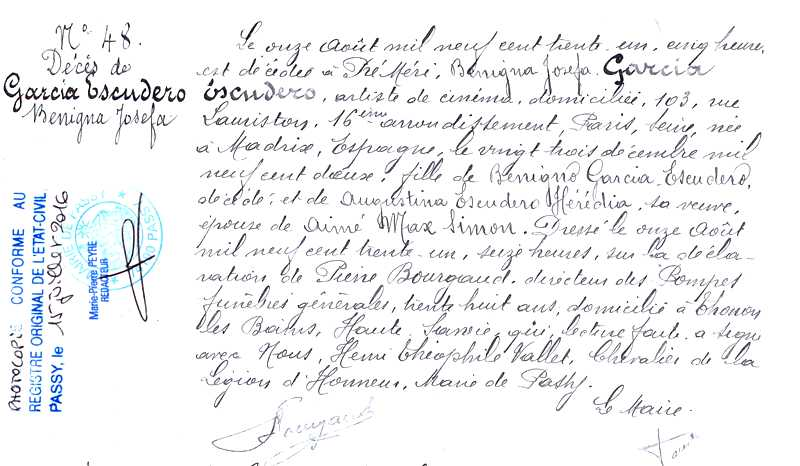 N° 48.
Décès de
Garcia Escudero
Benigna Josefa
Le onze Août mil neuf cent trente un, cinq heure,
est décédée à Prémeri, Benigna Josefa Garcia
Escudero, artiste de cinéma, domiciliée, 103, rue
Lauriston, 16ème arrondissement, Paris, Seine, née
à Madrix, Espagne, le vingt trois décembre mil
neuf cent deux, fille de Benigno Garcia Escudero,
décédé, et de Augustina Escudero Hérédia, sa veuve,
épouse de Aimé Max Simon. Dressé le onze Août
mil neuf cent trente un, seize heures, sur la décla-
ration de Pierre Bourgaud, directeur des Pompes
funèbres générales, trente huit ans, domicilié à Thonon
les Bains, Haute Savoie, qui, lecture faite a signé
avec Nous, Henri Théophile Vallet, Chevalier de la
Légion d'Honneur, Maire de Passy.
Le Maire.
PHOTOCOPIE CONFORME AU
REGISTRE ORIGINAL DE L'ETAT-CIVIL
PASSY, le 15 juillet 2016
Marie-Pierre PEYRE
REDACTEUR
MAIRIE DE PASSY